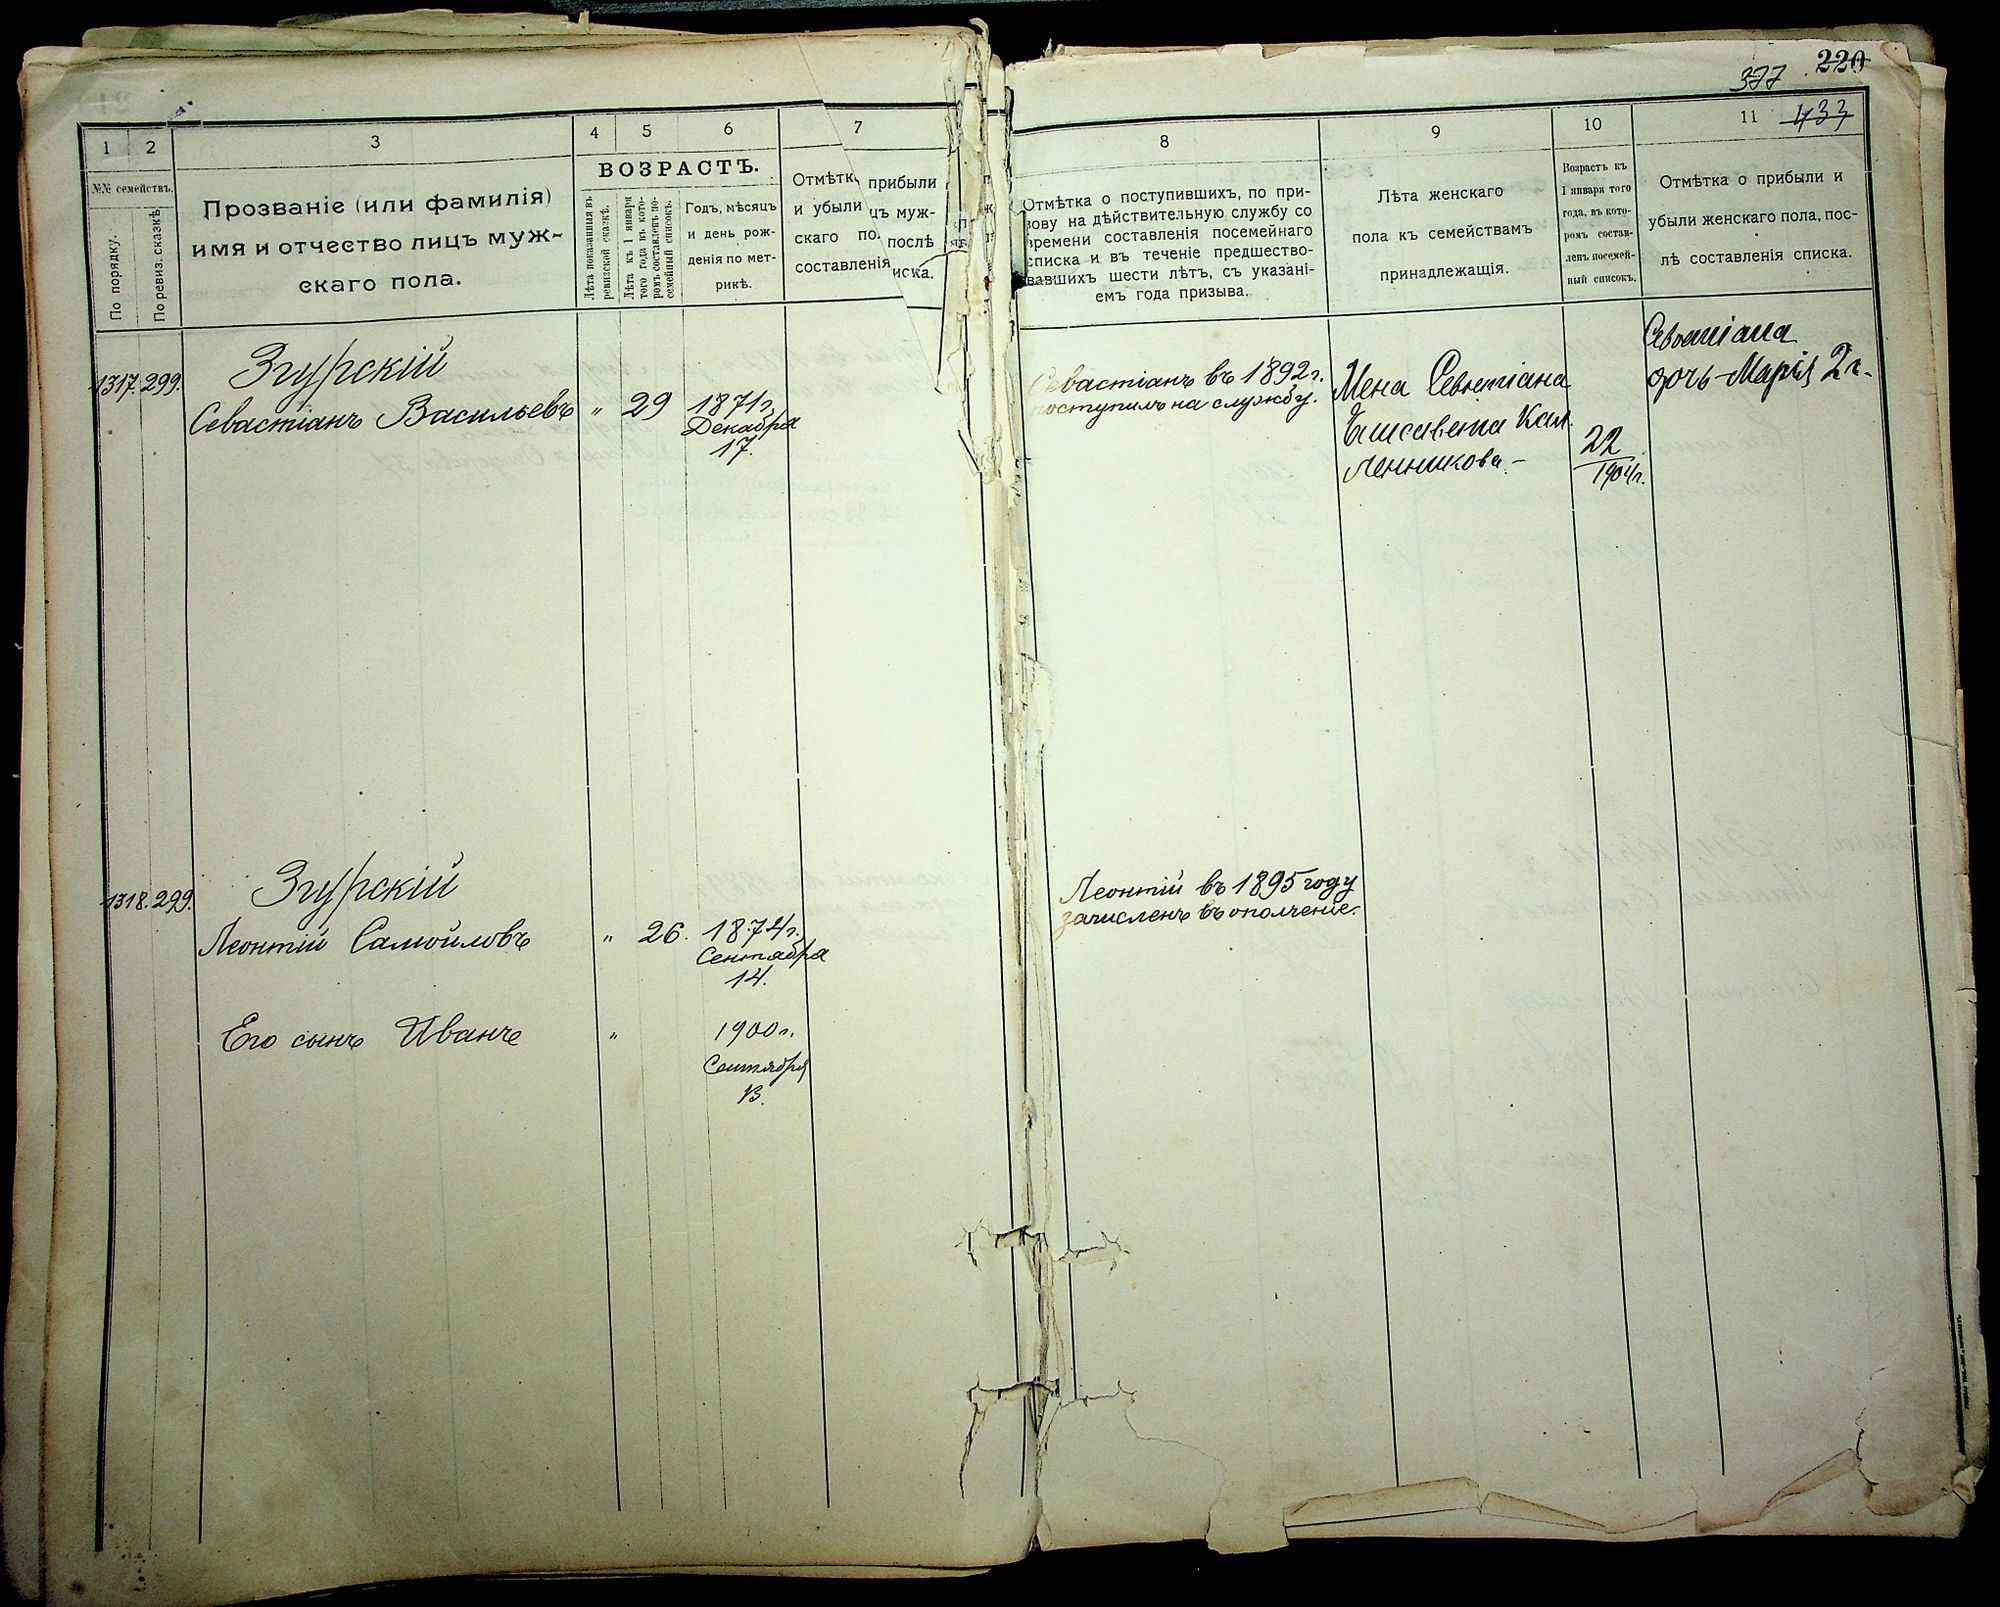 220
377
433
1
2
3
4
5
6
7
8
9
10
11
№№ семействъ.
По порядку.
По ревиз. сказкѣ
Прозваніе (или фамилія)
имя и отчество лицъ муж-
скаго пола.
ВОЗРАСТЪ.
Лѣта показанныя въ
ревизской сказкѣ.
Лѣта къ 1 января
того года въ кото-
ромъ составленъ по-
семейный списокъ.
Годъ, мѣсяцъ
и день рож-
денія по мет-
рикѣ.
Отмѣтка прибыли
и убыли цъ муж-
скаго по. послѣ
составленія иска.
Отмѣтка о поступившихъ, по при-
зову на дѣйствительную службу со
времени составленія посемейнаго
списка и въ теченіе предшество-
вавшихъ шести лѣтъ, съ указані-
емъ года призыва.
Лѣта женскаго
пола къ семействамъ
принадлежащія.
Возрастъ къ
1 января того
года, въ кото-
ромъ состав-
ленъ посемей-
ный списокъ.
Отмѣтка о прибыли и
убыли женскаго пола, пос-
лѣ составленія списка.
1317. 299.
Згурскій
Севастіанъ Васильевъ " 29 1871 г.
Декабря
17.
Севастіанъ въ 1892 г.
поступилъ на службу.
Жена Севастіана
Елисавета Кал.
22
1904 г.
Севастіана
дочь Марія 2 г.
1318. 299.
Згурскій
Леонтій Самойловъ " 26. 1874 г.
Сентября
14.
Леонтій въ 1895 году
зачисленъ въ ополченіе.
Его сынъ Иванъ " 1900 г.
Сентября
13.